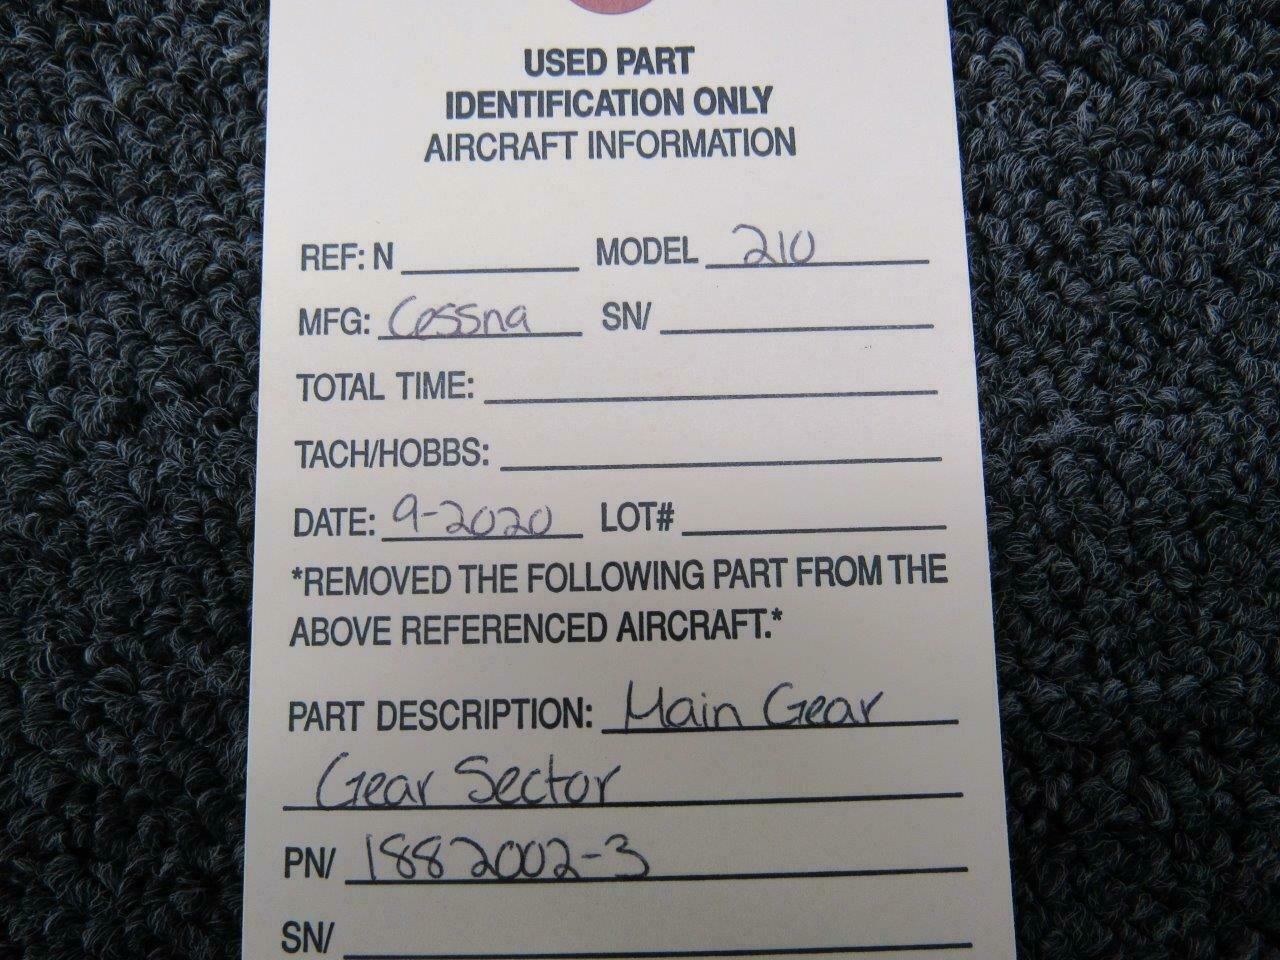 USED PART
IDENTIFICATION ONLY
AIRCRAFT INFORMATION
REF: N MODEL 210
MFG: Cessna SN/
TOTAL TIME:
TACH/HOBBS:
DATE: 9-2020 LOT#
*REMOVED THE FOLLOWING PART FROM THE
ABOVE REFERENCED AIRCRAFT.*
PART DESCRIPTION: Main Gear
Gear Sector
PN/ 1882002-3
SN/